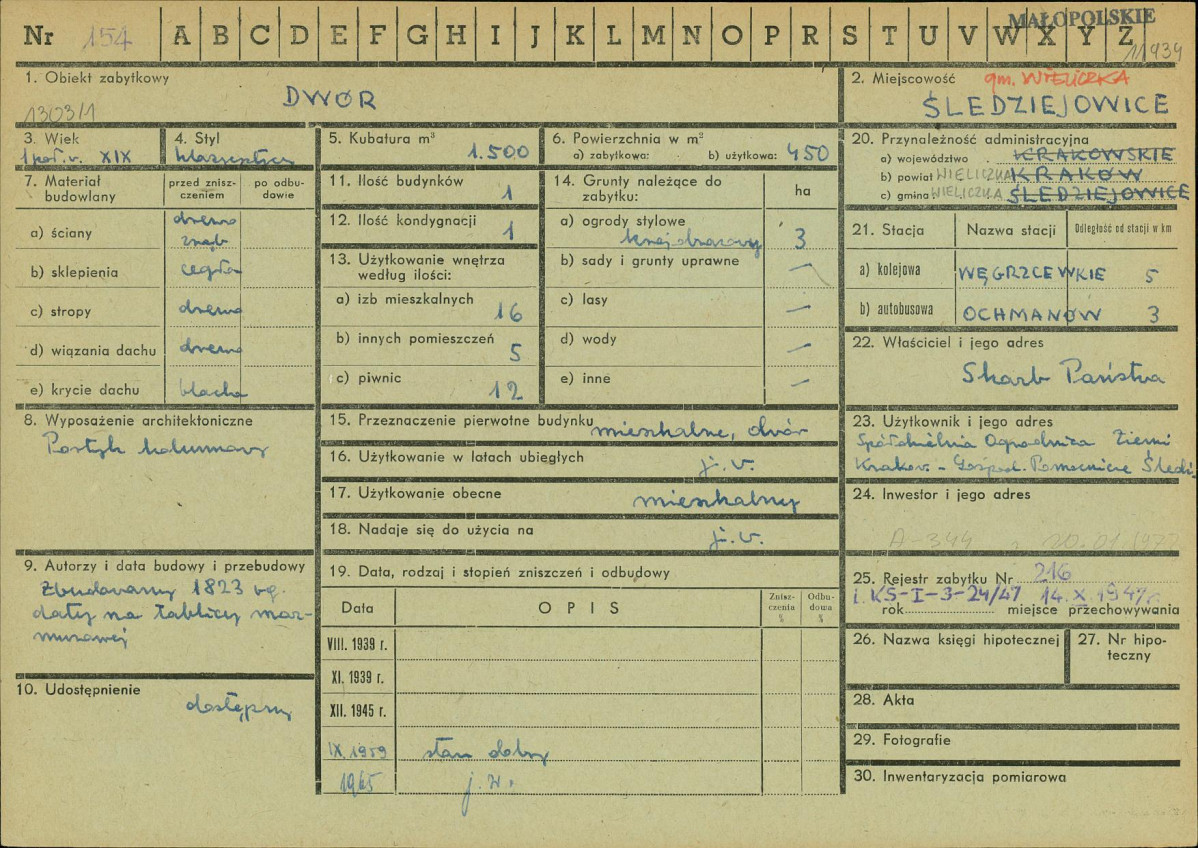 Nr 154 A B C D E F G H I J K L M N O P R S T U V W X Y Z
MAŁOPOLSKIE
11934
1. Obiekt zabytkowy
DWÓR
1303/1
2. Miejscowość gm. WIELICZKA
ŚLEDZIEJOWICE
3. Wiek
1 poł. w. XIX
4. Styl
klasycystyczny
5. Kubatura m³
1.500
6. Powierzchnia w m²
a) zabytkowa: b) użytkowa: 450
7. Materiał budowlany
przed zniszczeniem
po odbudowie
a) ściany drewno
zrąb
b) sklepienia cegła
c) stropy drewno
d) wiązania dachu drewno
e) krycie dachu blacha
8. Wyposażenie architektoniczne
Portyk kolumnowy
9. Autorzy i data budowy i przebudowy
Zbudowany 1823 wg.
daty na tablicy mar-
murowej
10. Udostępnienie
dostępny
11. Ilość budynków
1
12. Ilość kondygnacji
1
13. Użytkowanie wnętrza
według ilości:
a) izb mieszkalnych
16
b) innych pomieszczeń
5
c) piwnic
12
14. Grunty należące do
zabytku:
ha
a) ogrody stylowe
krajobrazowy 3
b) sady i grunty uprawne —
c) lasy —
d) wody —
e) inne —
15. Przeznaczenie pierwotne budynku mieszkalne, dwór
16. Użytkowanie w latach ubiegłych
j. w.
17. Użytkowanie obecne
mieszkalny
18. Nadaje się do użycia na
j. w.
19. Data, rodzaj i stopień zniszczeń i odbudowy
Data OPIS Zniszczenia % Odbudowa %
VIII. 1939 r.
XI. 1939 r.
XII. 1945 r.
IX. 1959 stan dobry
1965 j. w.
20. Przynależność administracyjna
a) województwo . KRAKOWSKIE
b) powiat WIELICZKA KRAKÓW
c) gmina WIELICZKA ŚLEDZIEJOWICE
21. Stacja Nazwa stacji Odległość od stacji w km
a) kolejowa WĘGRZCE WKIE 5
b) autobusowa OCHMANÓW 3
22. Właściciel i jego adres
Skarb Państwa
23. Użytkownik i jego adres
Spółdzielnia Ogrodnicza Ziemi
Krakow. - Gospod. Pomocnicze Śledzi.
24. Inwestor i jego adres
A-344 20.01.1977
25. Rejestr zabytku Nr 216
i. KS-I-3-24/47 14. X. 1947 r.
rok miejsce przechowywania
26. Nazwa księgi hipotecznej
27. Nr hipoteczny
28. Akta
29. Fotografie
30. Inwentaryzacja pomiarowa